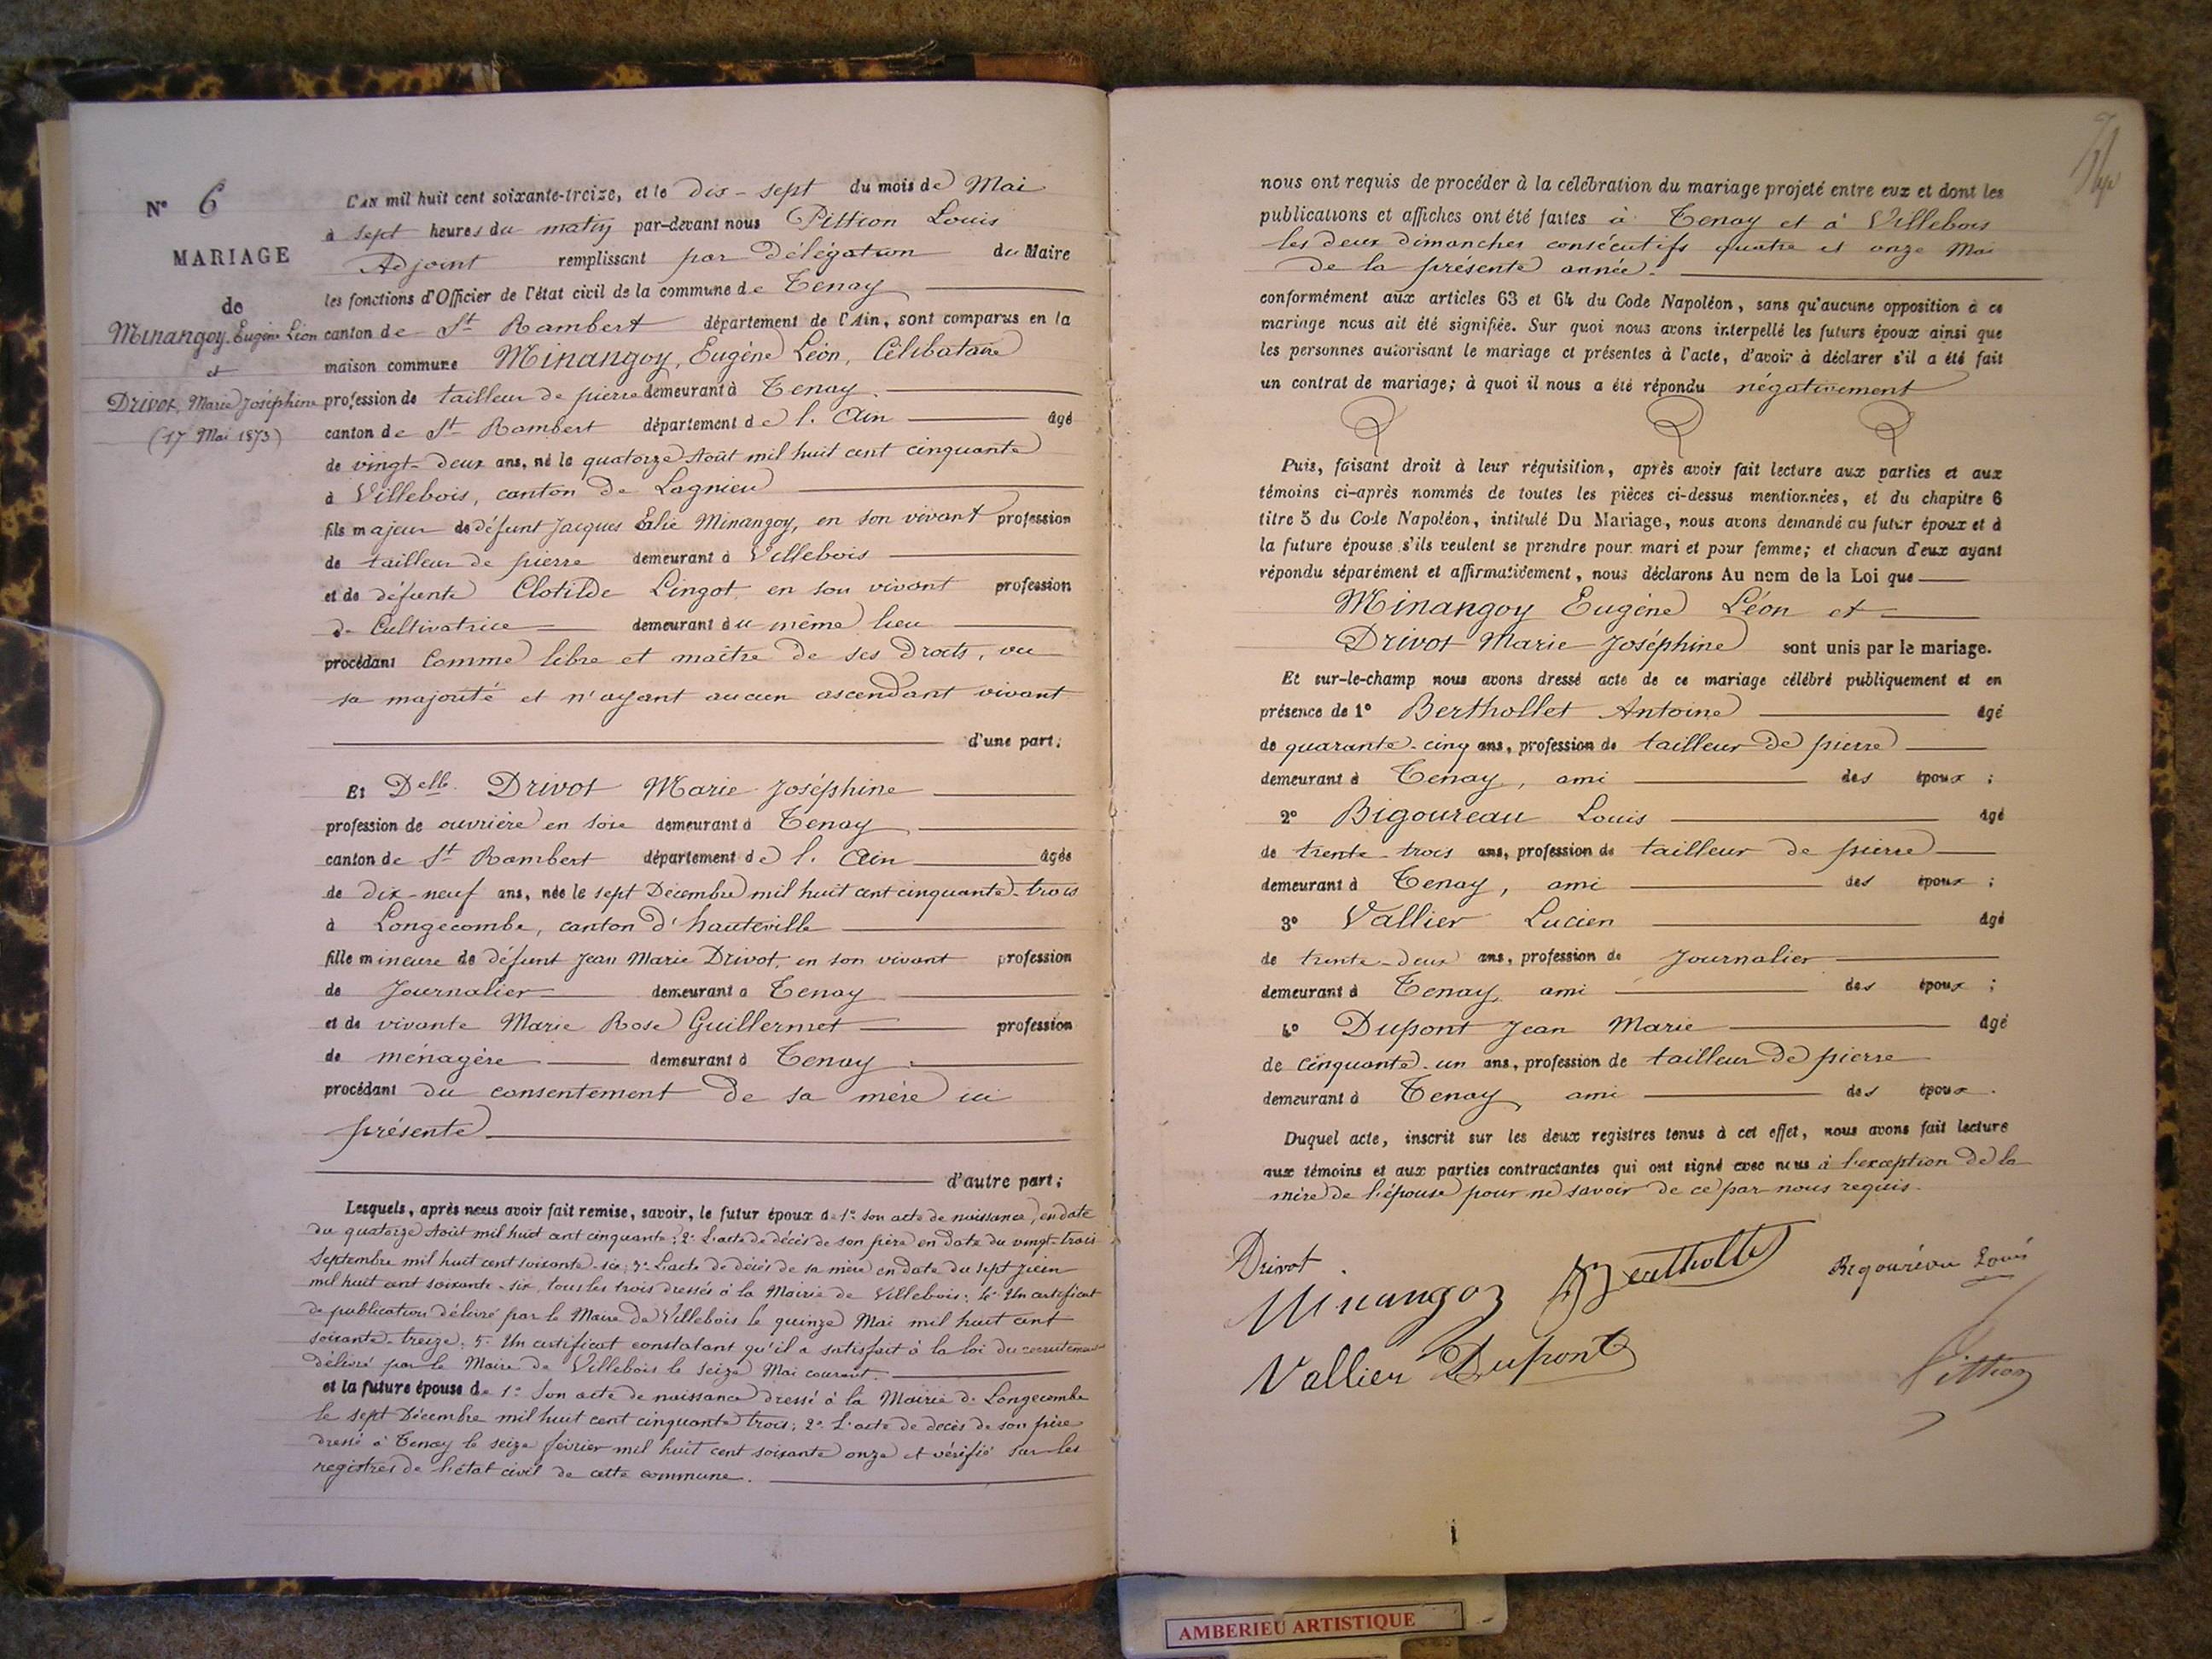 N° 6
MARIAGE
de
Minangoy Eugène Léon
et
Drivot, Marie Joséphine
(17 Mai 1873)
L'AN mil huit cent soixante-treize, et le dix-sept du mois de Mai
à sept heures du matin par-devant nous Pittion Louis
Adjoint remplissant par délégation du Maire
les fonctions d'Officier de l'état civil de la commune de Tenay
canton de St Rambert département de l'Ain, sont comparus en la
maison commune Minangoy, Eugène Léon, Célibataire
profession de tailleur de pierre demeurant à Tenay
canton de St Rambert département de l'Ain âgé
de vingt-deux ans, né le quatorze Août mil huit cent cinquante
à Villebois, canton de Lagnieu
fils majeur de défunt Jacques Minangoy, en son vivant profession
de tailleur de pierre demeurant à Villebois
et de défunte Clotilde Lingot en son vivant profession
de Cultivatrice demeurant du même lieu
procédant comme libre et maître de ses droits, vu
sa majorité et n'ayant aucun ascendant vivant
d'une part;
Et Delle Drivot Marie Joséphine
profession de ouvrière en soie demeurant à Tenay
canton de St Rambert département de l'Ain âgée
de dix-neuf ans, née le sept Décembre mil huit cent cinquante-trois
à Longecombe, canton d'hauteville
fille mineure de défunt Jean Marie Drivot, en son vivant profession
de Journalier demeurant à Tenay
et de vivante Marie Rose Guillermet profession
de ménagère demeurant à Tenay
procédant du consentement de sa mère ici
présente
d'autre part;
Lesquels, après nous avoir fait remise, savoir, le futur époux de 1° son acte de naissance, en date
du quatorze Août mil huit cent cinquante; 2° L'acte de décès de son père en date du vingt-trois
Septembre mil huit cent soixante-six; 3° L'acte de décès de sa mère en date du sept juin
mil huit cent soixante-six, tous les trois dressés à la Mairie de Villebois; 4° Un certificat
de publication délivré par le Maire de Villebois le quinze Mai mil huit cent
soixante-treize; 5° Un certificat constatant qu'il a satisfait à la loi du recrutement
délivré par le Maire de Villebois le seize Mai courant.
et la future épouse de 1° Son acte de naissance dressé à la Mairie de Longecombe
le sept Décembre mil huit cent cinquante trois; 2° L'acte de décès de son père
dressé à Tenay le seize février mil huit cent soixante onze et vérifié sur les
registres de l'état civil de cette commune.
nous ont requis de procéder à la célébration du mariage projeté entre eux et dont les
publications et affiches ont été faites à Tenay et à Villebois
les deux dimanches consécutifs quatre et onze Mai
de la présente année.
conformément aux articles 63 et 64 du Code Napoléon, sans qu'aucune opposition à ce
mariage nous ait été signifiée. Sur quoi nous avons interpellé les futurs époux ainsi que
les personnes autorisant le mariage et présentes à l'acte, d'avoir à déclarer s'il a été fait
un contrat de mariage; à quoi il nous a été répondu négativement
Puis, faisant droit à leur réquisition, après avoir fait lecture aux parties et aux
témoins ci-après nommés de toutes les pièces ci-dessus mentionnées, et du chapitre 6
titre 5 du Code Napoléon, intitulé Du Mariage, nous avons demandé au futur époux et à
la future épouse s'ils veulent se prendre pour mari et pour femme; et chacun d'eux ayant
répondu séparément et affirmativement, nous déclarons Au nom de la Loi que
Minangoy Eugène Léon et
Drivot Marie Joséphine sont unis par le mariage.
Et sur-le-champ nous avons dressé acte de ce mariage célébré publiquement et en
présence de 1° Berthollet Antoine âgé
de quarante-cinq ans, profession de tailleur de pierre
demeurant à Tenay, ami des époux;
2° Bigoureau Louis âgé
de trente-trois ans, profession de tailleur de pierre
demeurant à Tenay, ami des époux;
3° Vallier Lucien âgé
de trente-deux ans, profession de Journalier
demeurant à Tenay, ami des époux;
4° Dupont Jean Marie âgé
de cinquante-un ans, profession de tailleur de pierre
demeurant à Tenay, ami des époux.
Duquel acte, inscrit sur les deux registres tenus à cet effet, nous avons fait lecture
aux témoins et aux parties contractantes qui ont signé avec nous à l'exception de la
mère de l'épouse pour ne savoir de ce par nous requis.
Drivot
Minangoy Bertholle Bigouréau Loui
Vallier Dupont Pittion
AMBERIEU ARTISTIQUE